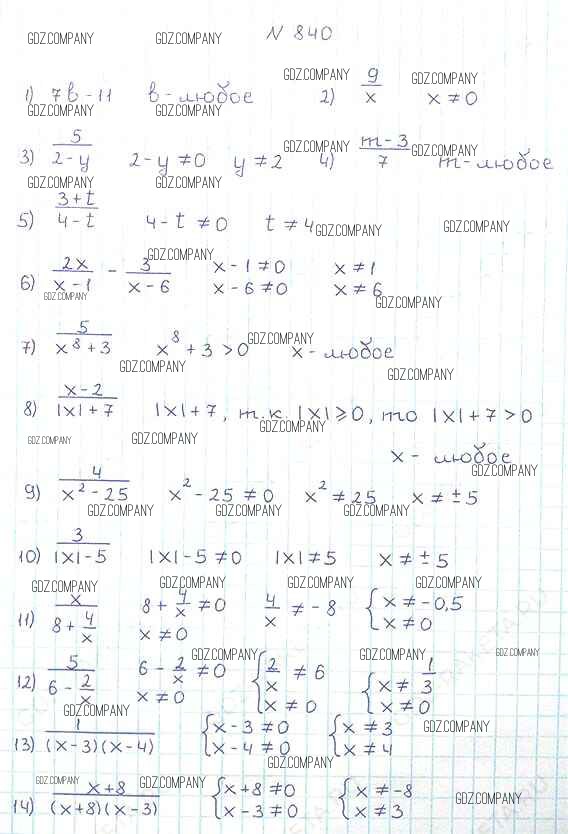 N 840
GDZ.COMPANY GDZ.COMPANY
GDZ.COMPANY GDZ.COMPANY
1) 7b - 11 b - любое 2) 9/x x ≠ 0
GDZ.COMPANY GDZ.COMPANY
3) 5/(2 - y) 2 - y ≠ 0 y ≠ 2 4) (m - 3)/7 m - любое
GDZ.COMPANY GDZ.COMPANY
GDZ.COMPANY GDZ.COMPANY
5) (3 + t)/(4 - t) 4 - t ≠ 0 t ≠ 4
GDZ.COMPANY GDZ.COMPANY
GDZ.COMPANY
6) 2x/(x - 1) - 3/(x - 6) x - 1 ≠ 0 x ≠ 1
x - 6 ≠ 0 x ≠ 6
GDZ.COMPANY GDZ.COMPANY
GDZ.COMPANY
7) 5/(x⁸ + 3) x⁸ + 3 > 0 x - любое
GDZ.COMPANY GDZ.COMPANY
8) (x - 2)/(|x| + 7) |x| + 7, т.к. |x| ≥ 0, то |x| + 7 > 0
GDZ.COMPANY GDZ.COMPANY GDZ.COMPANY
x - любое
GDZ.COMPANY
9) 4/(x² - 25) x² - 25 ≠ 0 x² ≠ 25 x ≠ ± 5
GDZ.COMPANY GDZ.COMPANY GDZ.COMPANY
10) 3/(|x| - 5) |x| - 5 ≠ 0 |x| ≠ 5 x ≠ ± 5
GDZ.COMPANY GDZ.COMPANY GDZ.COMPANY GDZ.COMPANY
11) x/(8 + 4/x) 8 + 4/x ≠ 0 4/x ≠ -8 { x ≠ -0,5
x ≠ 0 x ≠ 0
GDZ.COMPANY GDZ.COMPANY GDZ.COMPANY
12) 5/(6 - 2/x) 6 - 2/x ≠ 0 { 2/x ≠ 6 { x ≠ 1/3
x ≠ 0 x ≠ 0 x ≠ 0
GDZ.COMPANY
13) 1/((x - 3)(x - 4)) { x - 3 ≠ 0 { x ≠ 3
GDZ.COMPANY
x - 4 ≠ 0 x ≠ 4
GDZ.COMPANY
GDZ.COMPANY GDZ.COMPANY
14) (x + 8)/((x + 8)(x - 3)) { x + 8 ≠ 0 { x ≠ -8
GDZ.COMPANY
x - 3 ≠ 0 x ≠ 3